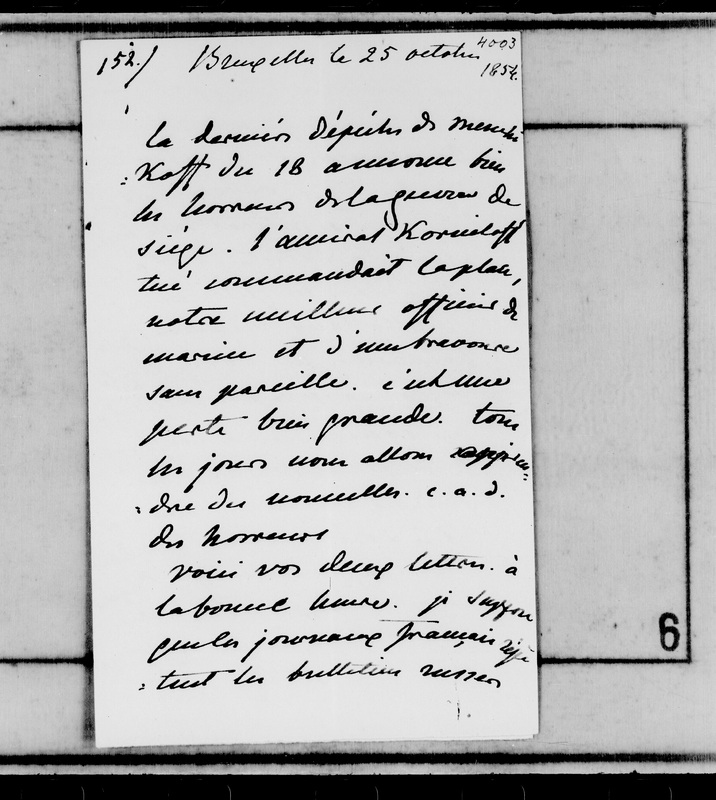 152./ Bruxelles le 25 octobre
4003
1854.
la dernière dépêche de Menchi
=Koff du 18 annonce bien
les horreurs de la guerre de
siége. l'amiral Korniloff
tué commandait la place,
notre meilleur officier de
marine et d'une bravoure
sans pareille. c'est une
perte bien grande. tous
les jours nous allons appren=
=dre des nouvelles. c.a.d.
des horreurs
voici vos deux lettres. à
la bonne heure. je suppose
que les journaux français répè
=tent les bulletins russes
6